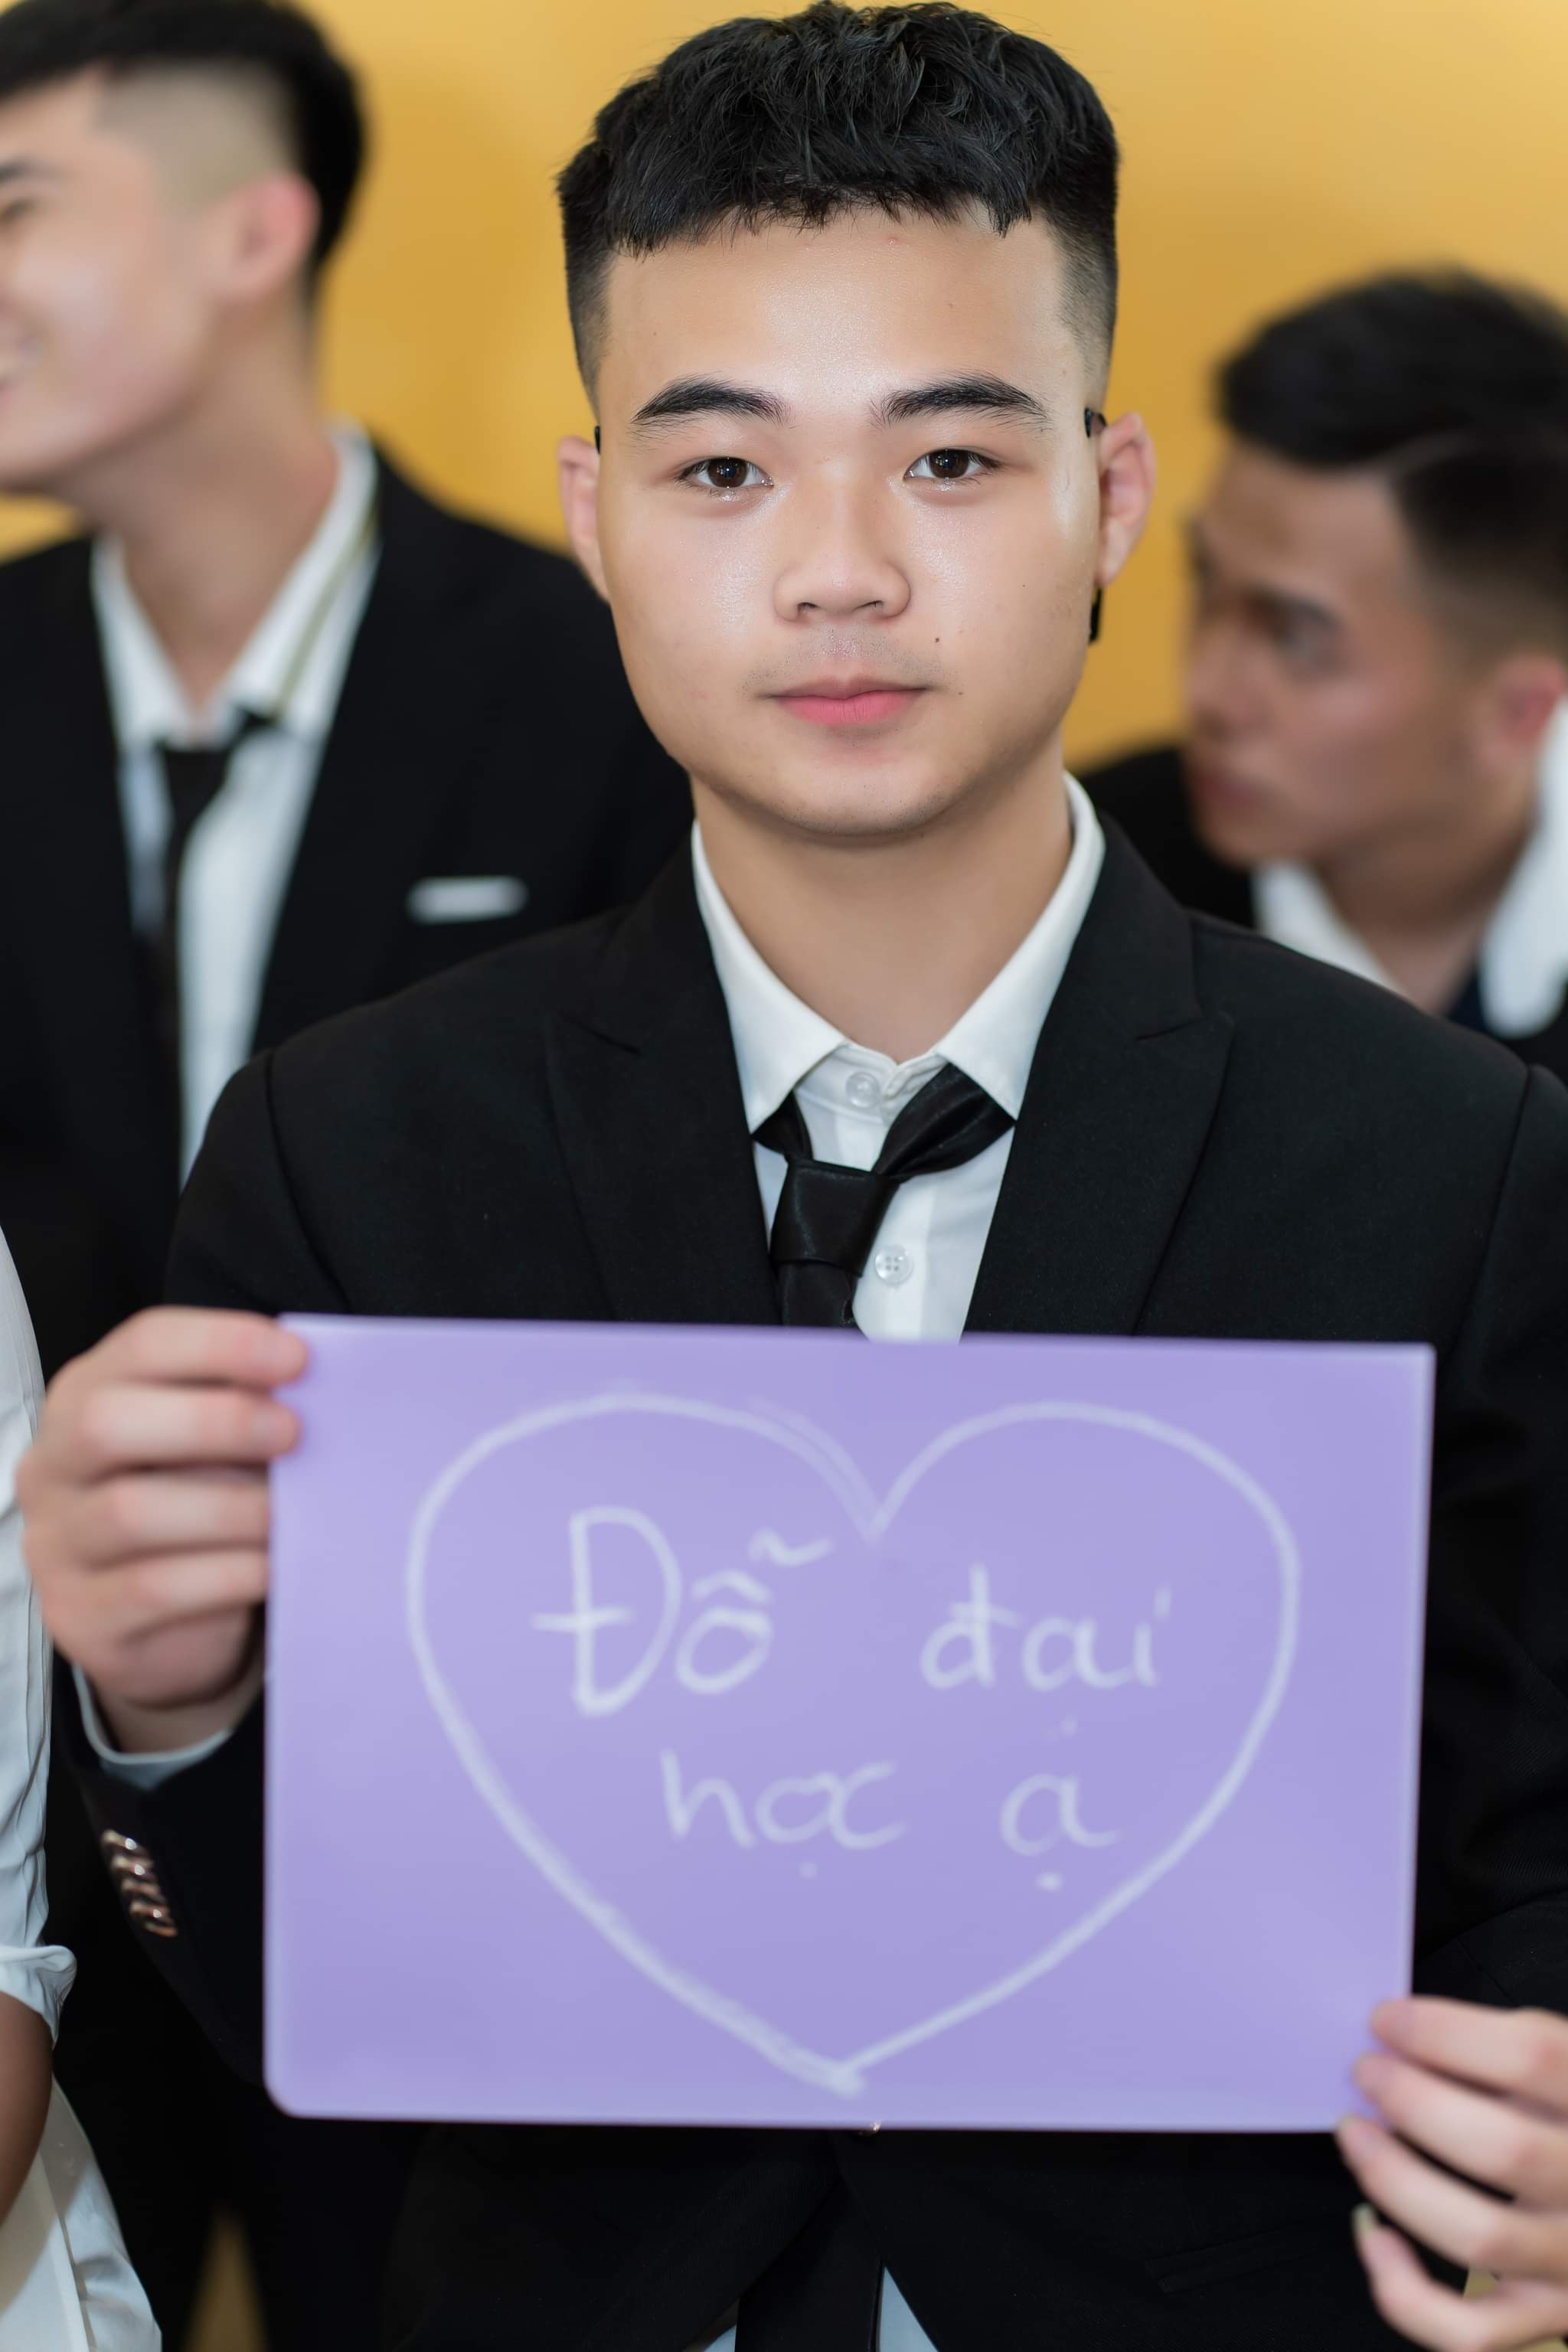 Đỗ đai
học ạ